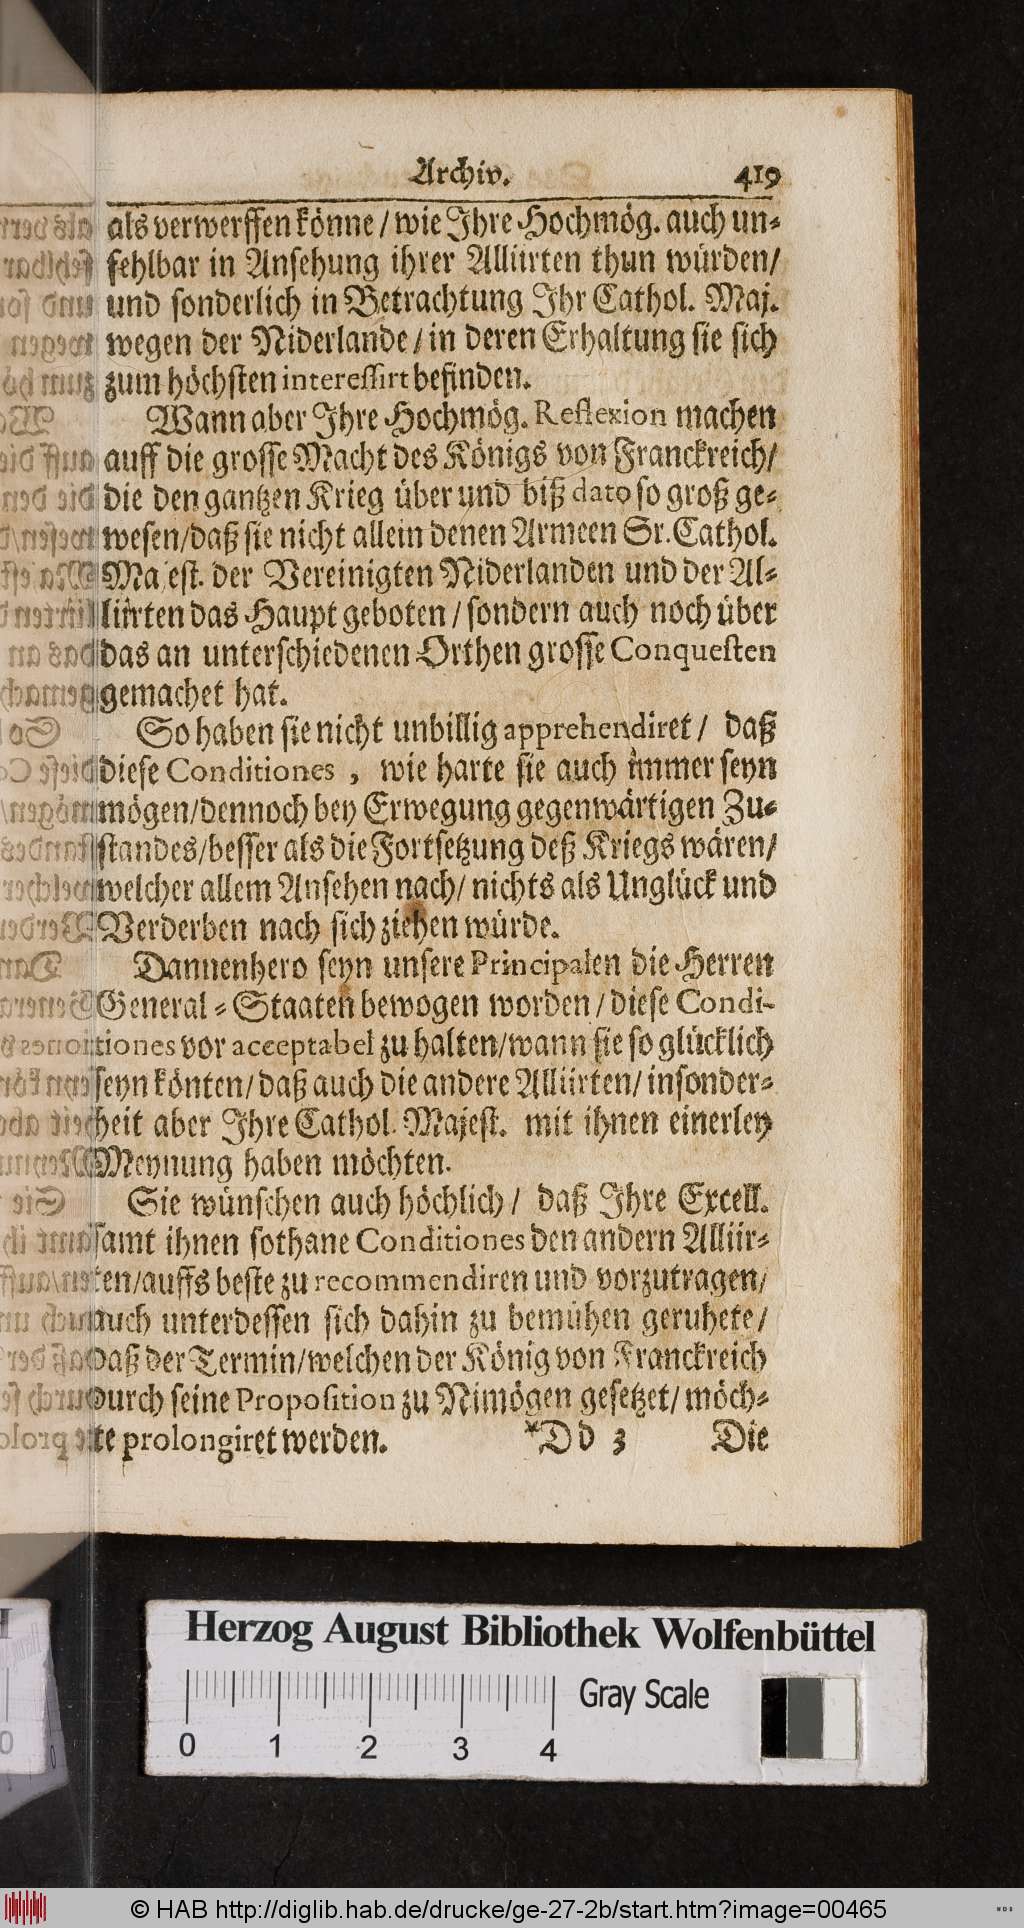 Archiv. 419
als verwerffen könne / wie Ihre Hochmög. auch un-
fehlbar in Ansehung ihrer Alliirten thun würden/
und sonderlich in Betrachtung Ihr Cathol. Maj.
wegen der Niderlande / in deren Erhaltung sie sich
zum höchsten interessirt befinden.
Wann aber Ihre Hochmög. Reflexion machen
auff die grosse Macht des Königs von Franckreich/
die den gantzen Krieg über und biß dato so groß ge-
wesen/daß sie nicht allein denen Armeen Sr. Cathol.
Majest. der Vereinigten Niderlanden und der Al-
liirten das Haupt geboten / sondern auch noch über
das an unterschiedenen Orthen grosse Conquesten
gemachet hat.
So haben sie nicht unbillig apprehendiret / daß
diese Conditiones , wie harte sie auch immer seyn
mögen/dennoch bey Erwegung gegenwärtigen Zu-
standes/besser als die Fortsetzung deß Kriegs wären/
welcher allem Ansehen nach/ nichts als Unglück und
Verderben nach sich ziehen würde.
Dannenhero seyn unsere Principalen die Herren
General-Staaten bewogen worden / diese Condi-
tiones vor acceptabel zu halten/wann sie so glücklich
seyn könten/ daß auch die andere Alliirten/ insonder-
heit aber Ihre Cathol. Majest. mit ihnen einerley
Meynung haben möchten.
Sie wünschen auch höchlich / daß Ihre Excell.
samt ihnen sothane Conditiones den andern Alliir-
ten/auffs beste zu recommendiren und vorzutragen/
auch unterdessen sich dahin zu bemühen geruhete/
daß der Termin/welchen der König von Franckreich
durch seine Proposition zu Nimögen gesetzet/ möch-
te prolongiret werden. *Dd 3 Die
Herzog August Bibliothek Wolfenbüttel
Gray Scale
0 1 2 3 4
© HAB http://diglib.hab.de/drucke/ge-27-2b/start.htm?image=00465